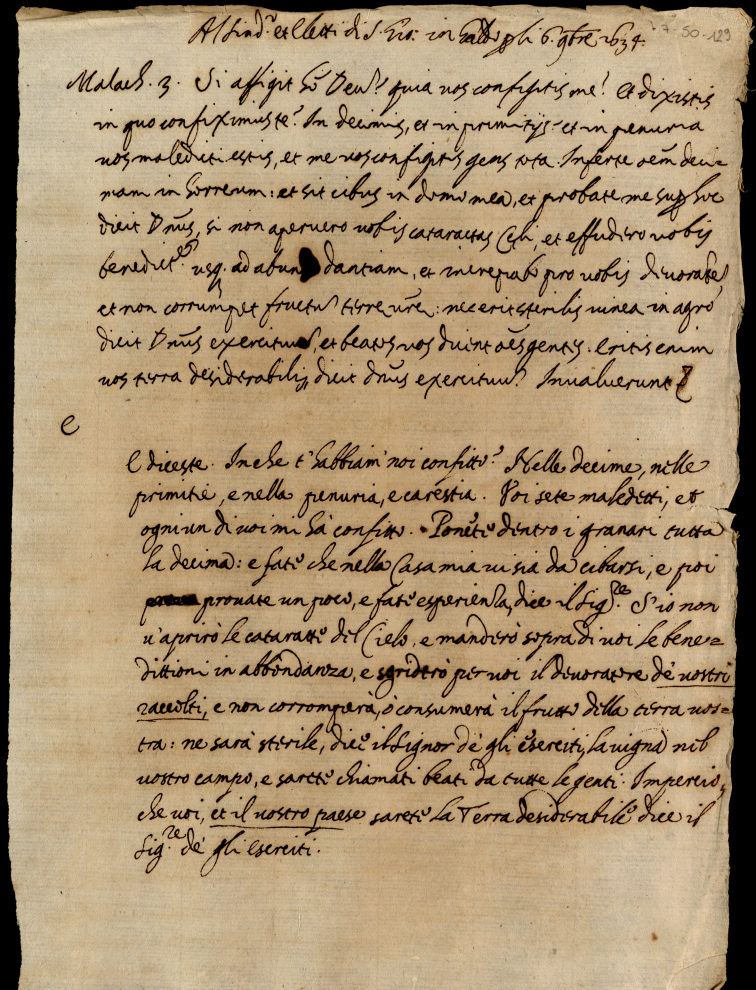 7-50-129
Al Sind.º et Eletti di S. Gio: in li 6. 9bre 1634
Malach. 3. Si affigit hō Deū? quia vos configitis me? Et dixistis
in quo confiximus te? In decimis, et in primitijs et in penuria
vos maledicti estis, et me vos configitis gens tota. Inferte oēm deci=
mam in horreum: et sit cibus in domo mea, et probate me sup hoc
dicit Dn̄us, si non aperuero vobis cataractas Cęli, et effudero vobis
benedict.es usq. ad abundantiam, et increpabo pro vobis devorātē,
et non corrumpet fructū terre vrē: nec erit sterilis vinea in agro
dicit Dn̄us exercituū, et beatos vos dicent oēs gentes. Eritis enim
vos terra desiderabilis, dicit dn̄us exercituū. Invaluerunt &
E
E diceste. In che t'habbiam' noi confitto? Nelle decime, nelle
primitie, e nella penuria, e carestia. Voi sete maledetti, et
ogniun di voi mi hà confitto. Ponete dentro i granari tutta
la decima: e fate che nella Casa mia vi sia da cibarsi, e poi
provate un poco, e fate esperienza, dice il Sig.re S'io non
v'aprirò le cataratte del Cielo, e manderò sopra di voi le bene=
dittioni in abbondanza, e sgriderò per voi il devoratore de' vostri
raccolti, e non corromperà, ò consumerà il frutto della terra vos=
tra: ne sarà sterile, dice il Signor de gli eserciti, la vigna nel
vostro campo, e sarete chiamati beati da tutte le genti. Impercio,
che voi, et il vostro paese sarete la Terra desiderabile dice il
Sig.re de gli eserciti.